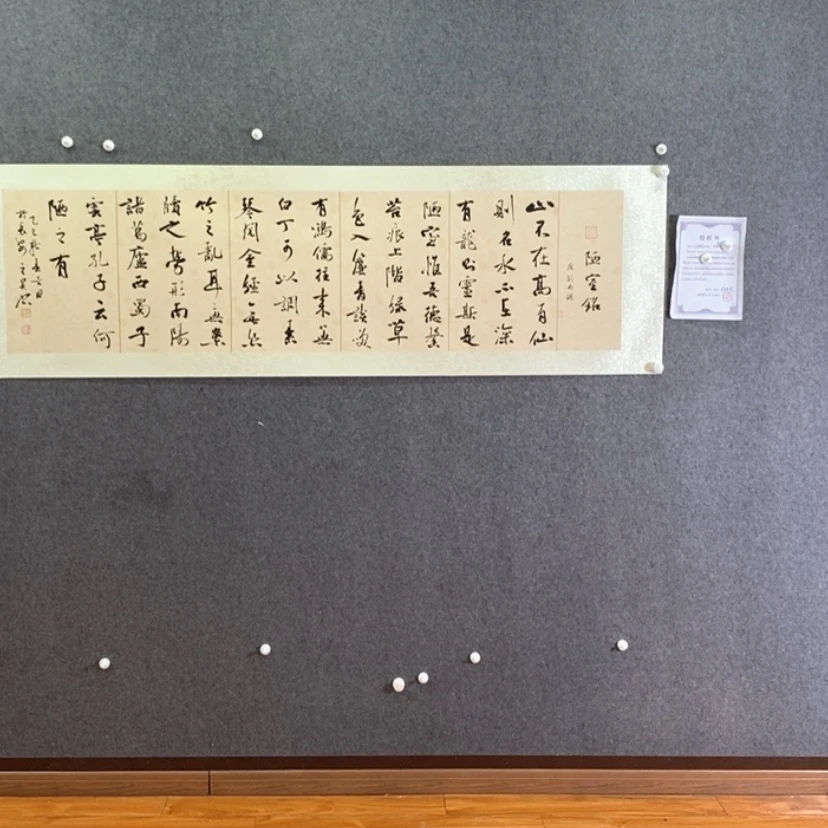 陋室銘
唐劉禹錫
山不在高有仙
則名水不在深
有龍則靈斯是
陋室惟吾德馨
苔痕上階綠草
色入簾青談笑
有鴻儒往來無
白丁可以調素
琴閱金經無絲
竹之亂耳無案
牘之勞形南陽
諸葛廬西蜀子
雲亭孔子云何
陋之有
乙巳